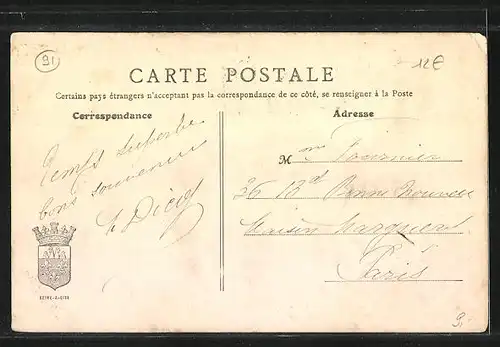 91
12€
CARTE POSTALE
Certains pays étrangers n'acceptant pas la correspondance de ce côté, se renseigner à la Poste
Correspondance
Adresse
Temps superbe
bons souvenirs
Mme Fournier
36 Bd Bonne Nouvelle
Maison Marguerit
Paris
9.-